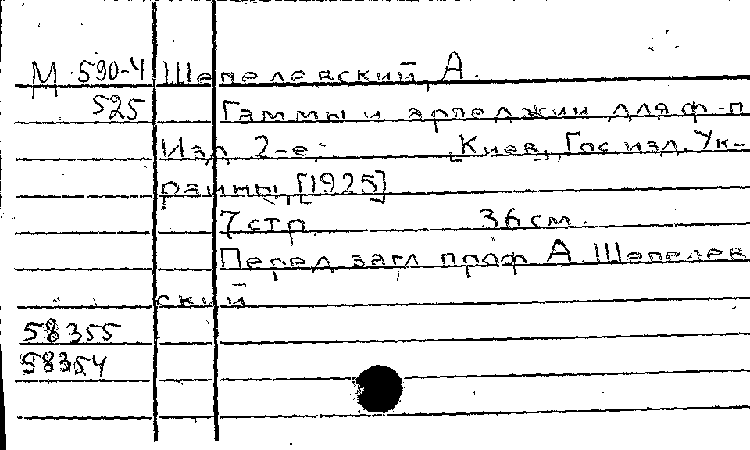 М 590-4 Шепелевский, А.
525 Гаммы и арпеджии для ф-п
Изд. 2-е. [Киев, Гос. изд. Ук-
раины, [1925]
7 стр. 36 см.
Перед загл. проф. А. Шепелев
ский
58355
58354